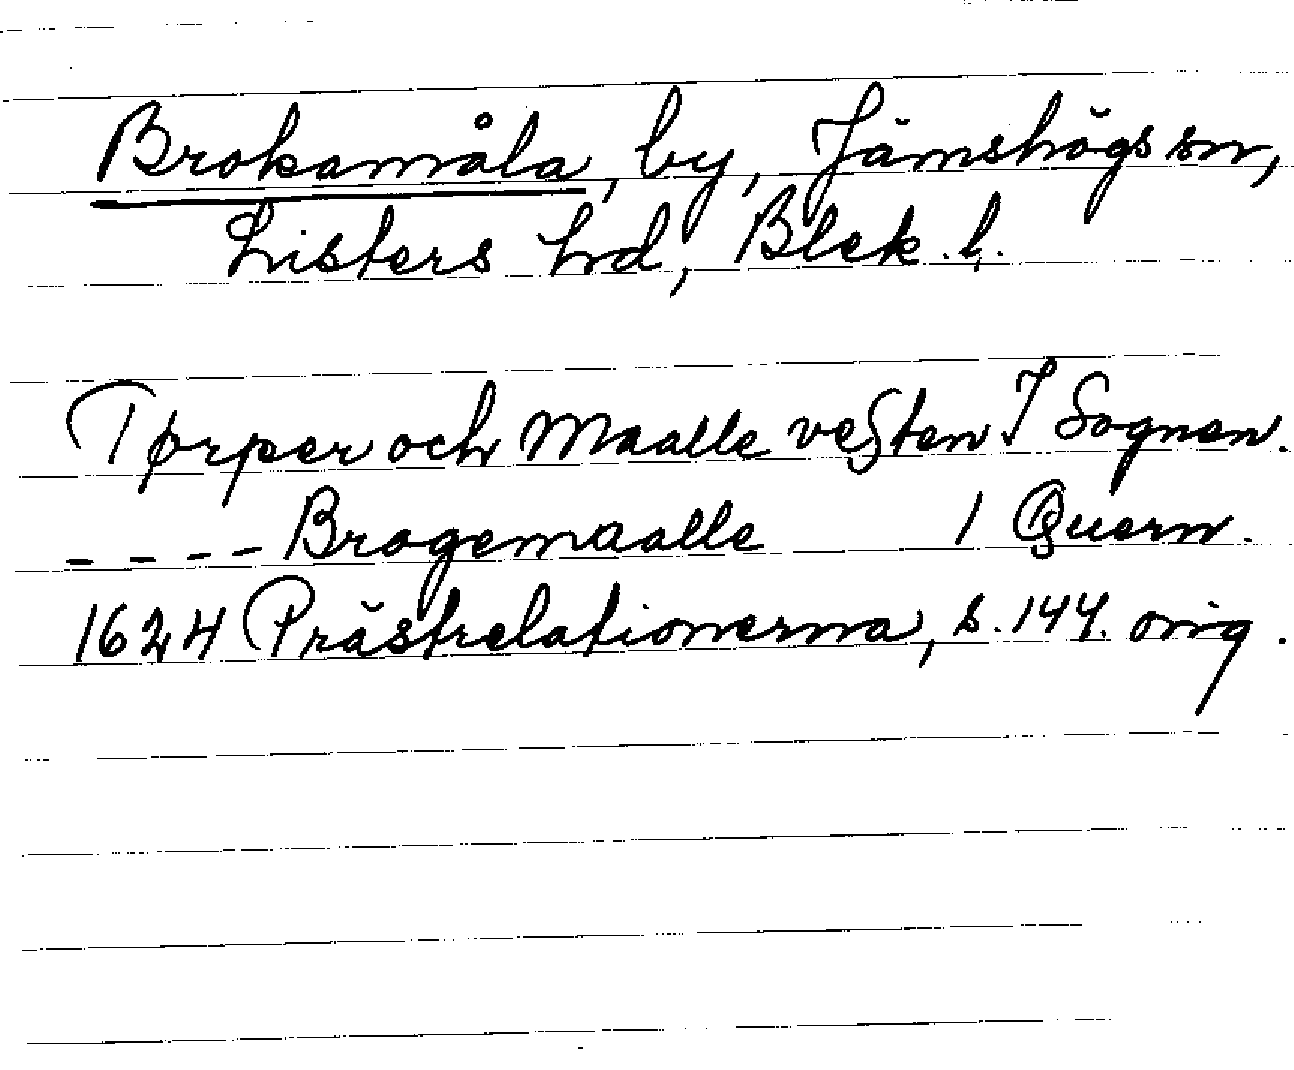 Brokamåla, by, Jämshögs sn,
Listers hd, Blek. l.
Tørper och Maalle vesten I Sognen.
- - - - Brogemaalle 1 Quern.
1624 Prästrelationerna, s. 144. orig.